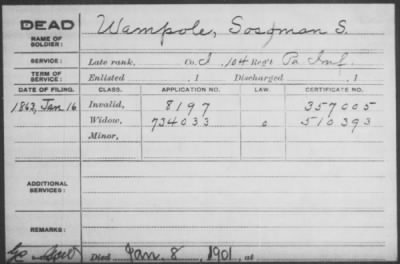 DEAD Wampole, Sosoman S.
NAME OF SOLDIER:
SERVICE: Late rank, Co. I, 104 Reg't Pa Inf.
TERM OF SERVICE: Enlisted , 1 Discharged , 1
DATE OF FILING. CLASS. APPLICATION NO. LAW. CERTIFICATE NO.
1863, Jan 16 Invalid, 8197 357005
Widow, 734033 510393
Minor,
ADDITIONAL SERVICES:
REMARKS:
Died Jan. 8, 1901, at